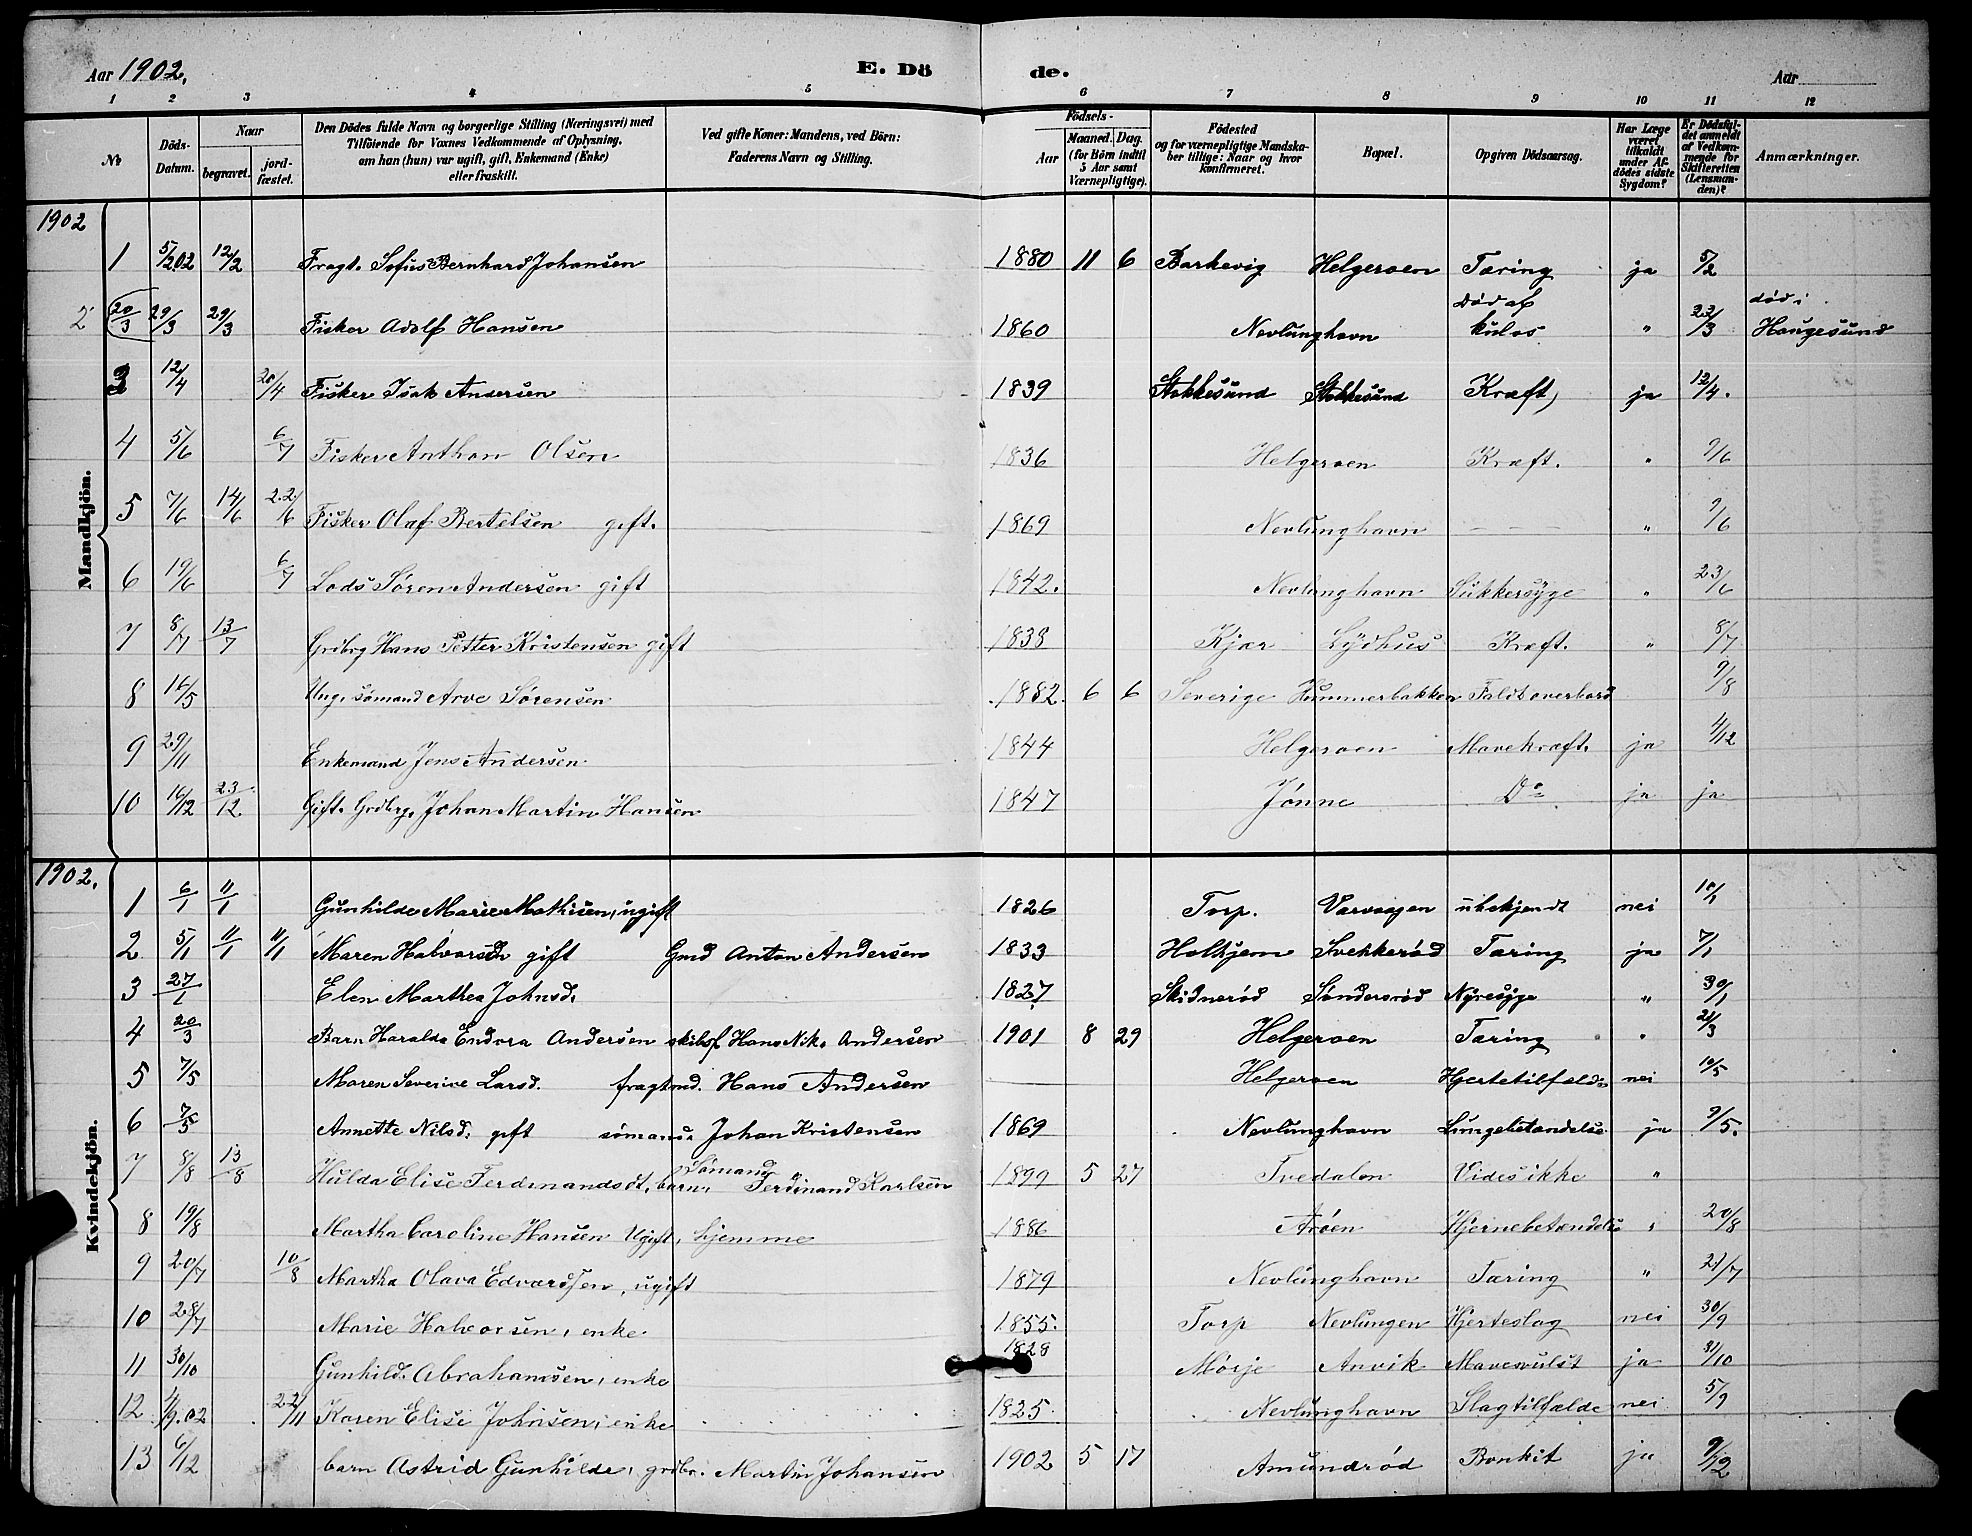 Aar 1902. E. Dö de. Aar
1 2 3 4 5 6 7 8 9 10 11 12
No
Döds-Datum.
Naar begravet. jordfæstet.
Den Dödes fulde Navn og borgerlige Stilling (Næringsvei) med Tilföiende for Voxnes Vedkommende af Oplysning, om han (hun) var ugift, gift, Enkemand (Enke) eller fraskilt.
Ved gifte Koner: Mandens, ved Börn: Faderens Navn og Stilling.
Födsels-
Aar Maaned. Dag. (for Börn indtil 5 Aar samt Værnepligtige).
Födested og for værnepligtige Mandskaber tillige: Naar og hvor konfirmeret.
Bopæl.
Opgiven Dödsaarsag.
Har Læge været tilkaldt under Afdödes sidste Sygdom?
Er Dödsfaldet anmeldt af Vedkommende for Skifteretten (Lensmanden)?
Anmærkninger.
Mandkjön.
1902
1 5/2 02 12/2 Fragt. Sofus Bernhard Johansen 1880 11 6 Barkevig Helgeroen Tæring ja 5/2
2 (20/3) 29/3 29/3 Fisker Adolf Hansen 1860 Nevlunghavn Død af kulos " 22/3 død i Haugesund
3 12/4 20/4 Fisker Isak Andersen 1839 Stokkesund Stokkesund Kræft, ja 12/4.
4 5/6 6/7 Fisker Anthon Olsen 1836 Helgeroen Kræft. " 9/6
5 7/6 14/6 22/6 Fisker Olaf Bertelsen gift. 1869 Nevlunghavn — — — " 9/6
6 19/6 6/7 Lods Søren Andersen gift 1842. Nevlunghavn Sukkersyge " 23/6
7 8/7 13/7 Grdbrg Hans Petter Kristensen gift 1838 Kjær Lydhus Kræft. " 8/7
8 16/5 Ung. sømand Arve Sørensen 1882. 6 6 Sverige Hummerbakken Faldt overbord 9/8
9 29/11 Enkemand Jens Andersen 1844 Helgeroen Mavekræft. ja 4/12
10 16/12 23/12 Gift. Grdbrg. Johan Martin Hansen 1847 Jønne Do ja ja
Kvindekjön.
1902.
1 6/1 11/1 Gunhilde Marie Mathisen, ugift 1826 Torp. Varvaagen ubekjendt nei 10/1
2 5/1 11/1 11/1 Maren Halvorsen gift Gmd Anton Andersen 1833 Holhjem Svekkerød Tæring ja 7/1
3 27/1 Elen Marthea Johnsd. 1827 Skidnerød Søndersrød Nyresyge " 30/1
4 20/3 Barn Haralda Endora Andersen skibsf. Hans Nik. Andersen 1901 8 29 Helgeroen Tæring " 21/3
5 7/5 Maren Severine Larsd. fragtmd. Hans Andersen Helgeroen Hjertetilfælde nei 10/5
6 7/5 Annette Nilsd. gift sømand. Johan Kristensen 1869 Nevlunghavn Lungebetændelse ja 9/5.
7 8/8 13/8 Hulda Elise Ferdinandsdt. barn, Sømand Ferdinand Karlsen 1899 5 27 Tvedalen Vides ikke "
8 19/8 Martha Caroline Hansen Ugift, hjemme 1886 Arøen Hjernebetændelse " 20/8
9 20/7 10/8 Martha Olava Edvardsen, ugift 1879 Nevlunghavn Tæring " 21/7
10 28/7 Marie Halvorsen, enke 1855. Torp Nevlungen Hjerteslag nei 30/9
11 30/10 Gunhild. Abrahamsen, enke 1828 Mørje Anvik Mavesvulst ja 31/10
12 4/9.02 22/11 Karen Elise Johnsen, enke 1825. Nevlunghavn Slagtilfælde nei 5/9
13 6/12 barn Astrid Gunhilde, grdbr. Martin Johansen 1902 5 17 Amundrød Bronkit ja 9/12